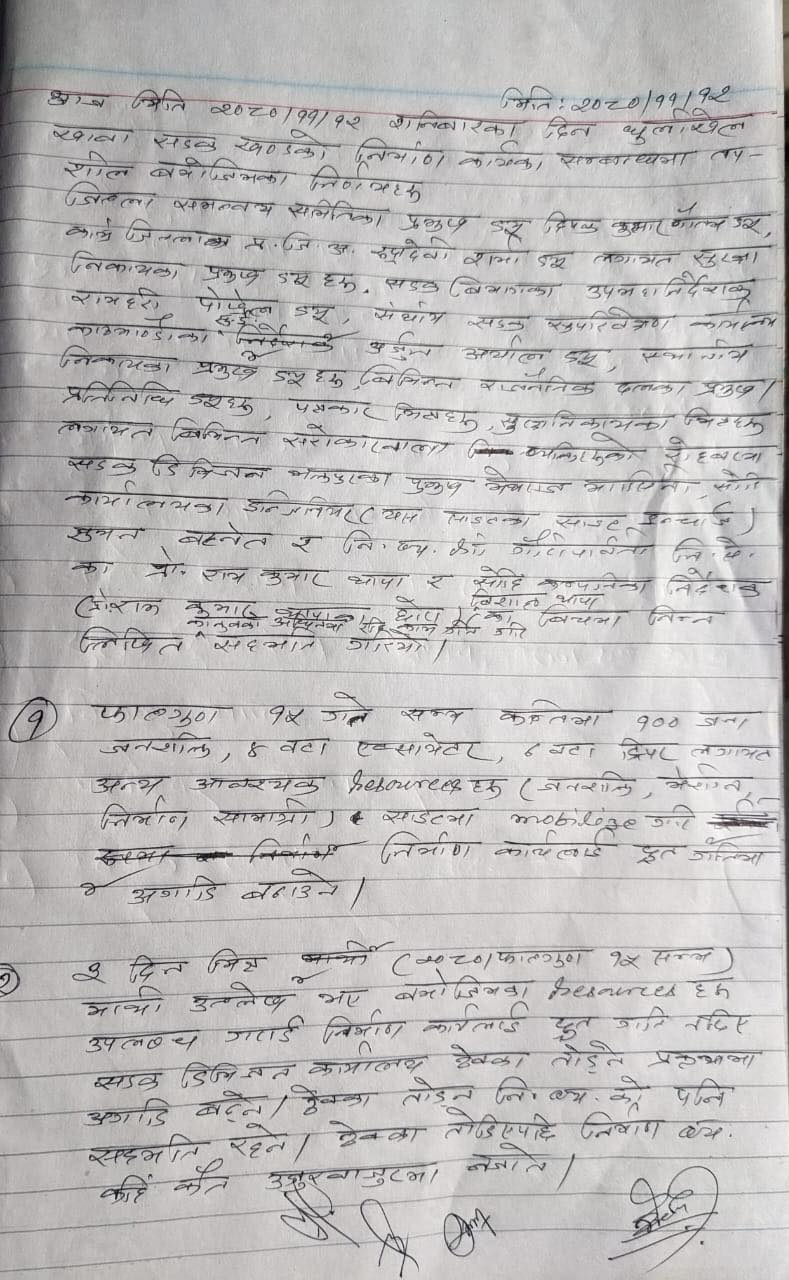 मिति: २०८०/११/१२
आज मिति २०८०/११/१२ शनिबारका दिन धुलीखेल
खावा सडक खण्डको निर्माण कार्यका सम्बन्धमा तप-
शील बमोजिमका निर्णयहरु
जिल्ला समन्वय समितिका प्रमुख ज्यू दिपक कुमार गौतम ज्यू,
काभ्रे जिल्लाका प्र.जि.अ. रुद्रादेवी शर्मा ज्यू लगायत सुरक्षा
निकायका प्रमुख ज्यू हरु, सडक बिभागका उपमहानिर्देशक
रामहरी पोखरेल ज्यू, संघीय सडक सुपरिवेक्षण कार्यालय
काठमाण्डौका अर्जुन अर्याल ज्यू, स्थानीय
निकायका प्रमुख ज्यू हरु बिभिन्न राजनैतिक दलका प्रमुख/
प्रतिनिधि ज्यूहरु, पत्रकार मित्रहरु, सुरक्षा निकायका मित्रहरु
लगायत बिभिन्न सरोकारवाला व्यक्तिहरुको रोहबरमा
सडक डिभिजन भक्तपुरका प्रमुख सोहि
कार्यालयका इन्जिनियर (यस साइटका साइट इन्चार्ज)
सुमन बस्नेत र नि.व्य. श्री गौरीपार्वती नि.से.
का प्रो. राम कुमार थापा र सोहि कम्पनिका निर्देशक
बिशाल थापा
(प्रो राम कुमार थापाका छोरा) का बिचमा निम्न
लिखित सहमति गरियो।
① फाल्गुण १५ गते सम्म कम्तिमा १०० जना
जनशक्ति, ४ वटा एक्साभेटर, ६ वटा टिपर लगायत
अन्य आवश्यक Resources हरु (जनशक्ति, मेशिन,
निर्माण सामाग्री) साइटमा mobilize गरि
निर्माण कार्यलाई द्रुत गतिमा
अगाडि बढाउने।
२ ३ दिन भित्र (२०८०/फाल्गुण १५ सम्म)
माथी उल्लेख भए बमोजिमका Resources हरु
उपलब्ध गराई निर्माण कार्यलाई द्रुत गति नदिए
सडक डिभिजन कार्यालय ठेक्का तोड्ने प्रकृयामा
अगाडि बढ्ने। ठेक्का तोड्न नि.व्य. को पनि
सहमति रहने। ठेक्का तोडिएपछि निर्माण व्य.
कहिं कतै उजुरबाजुरमा नजाने।